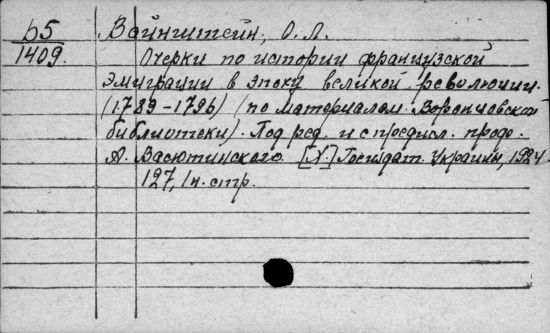 Б5
1409.
Вайнштейн, О. Л.
Очерки по истории французской
эмиграции в эпоху великой революции.
(1789-1796) (по материалам Воронцовской
библиотеки). Под ред. и с предисл. проф.
А. Васютинского. [Х.] Госиздат. Украины, 1924
127, 1н. стр.